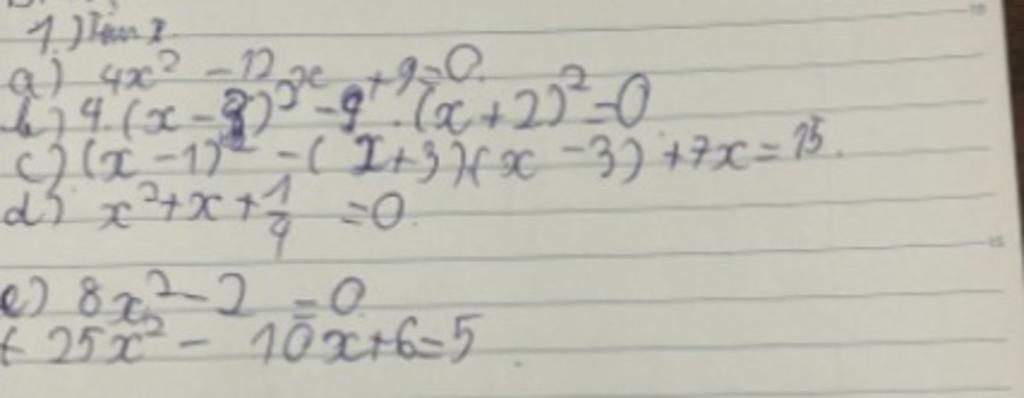 1.) Tìm x.
a) 4x² - 12x + 9 = 0.
b) 4.(x - 3)² - 9.(x + 2)² = 0
c) (x - 1)² - (x + 3)(x - 3) + 7x = 15.
d) x² + x + 1/4 = 0.
e) 8x² - 2 = 0
f 25x² - 10x + 6 = 5